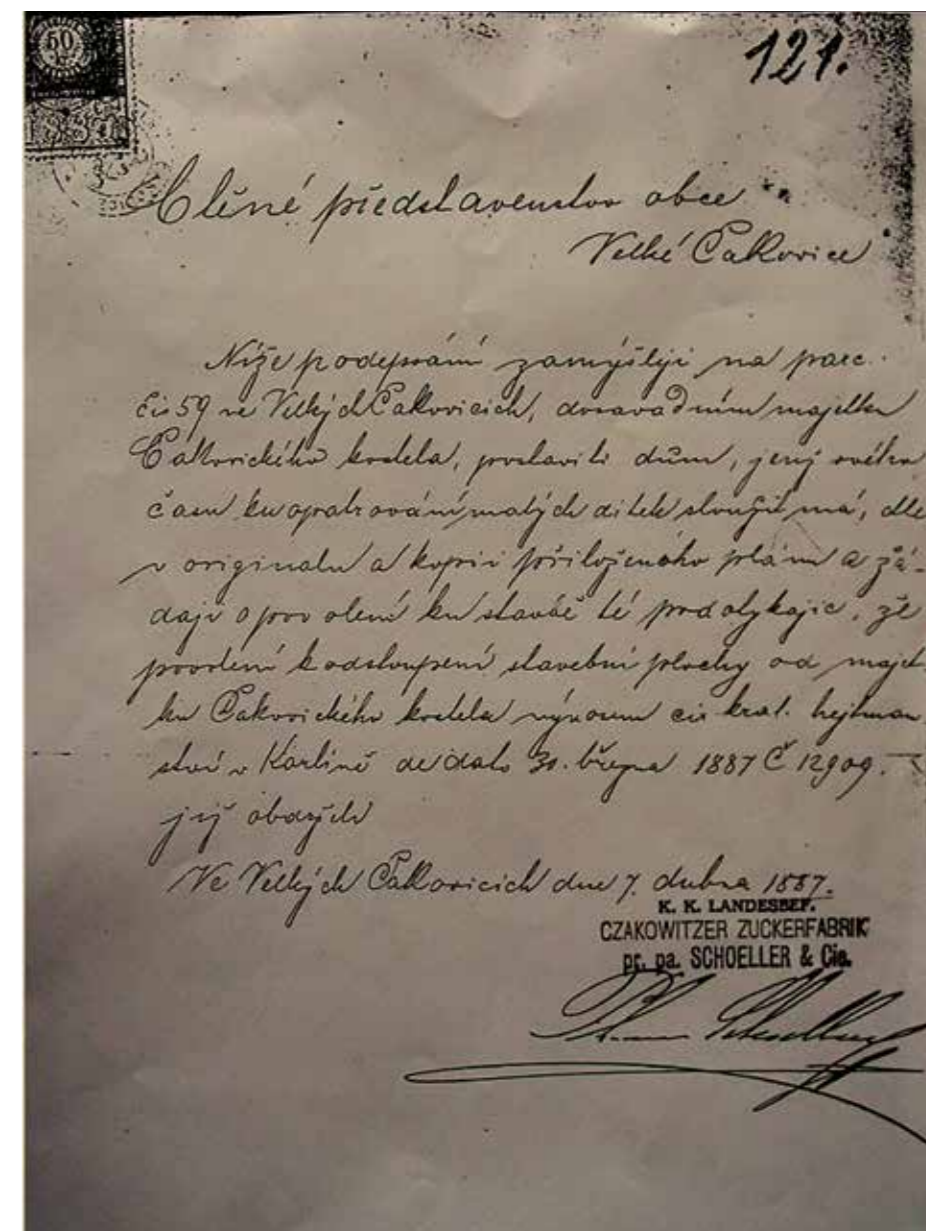 50
121.
Ctěné představenstvo obce
Velké Čakovice
Níže podepsaní zamýšlejí na parc.
čís 59 ve Velkých Čakovicích, dosavadním majetku
Čakovického kostela, postaviti dům, jenž svého
času ku opatrování malých dítek sloužit má, dle
v originalu a kopii přiloženého plánu a žá-
dají o povolení ku stavbě té podotýkajíc, že
povolení k odstoupení stavební plochy od majet
ku Čakovického kostela výnosem cís kral. hejtman
ství v Karlíně de dato 30. března 1887 Č 12909.
již obdrželi
Ve Velkých Čakovicích dne 7. dubna 1887.
K. K. LANDESBEF.
CZAKOWITZER ZUCKERFABRIK
pr. pa. SCHOELLER & Cie.